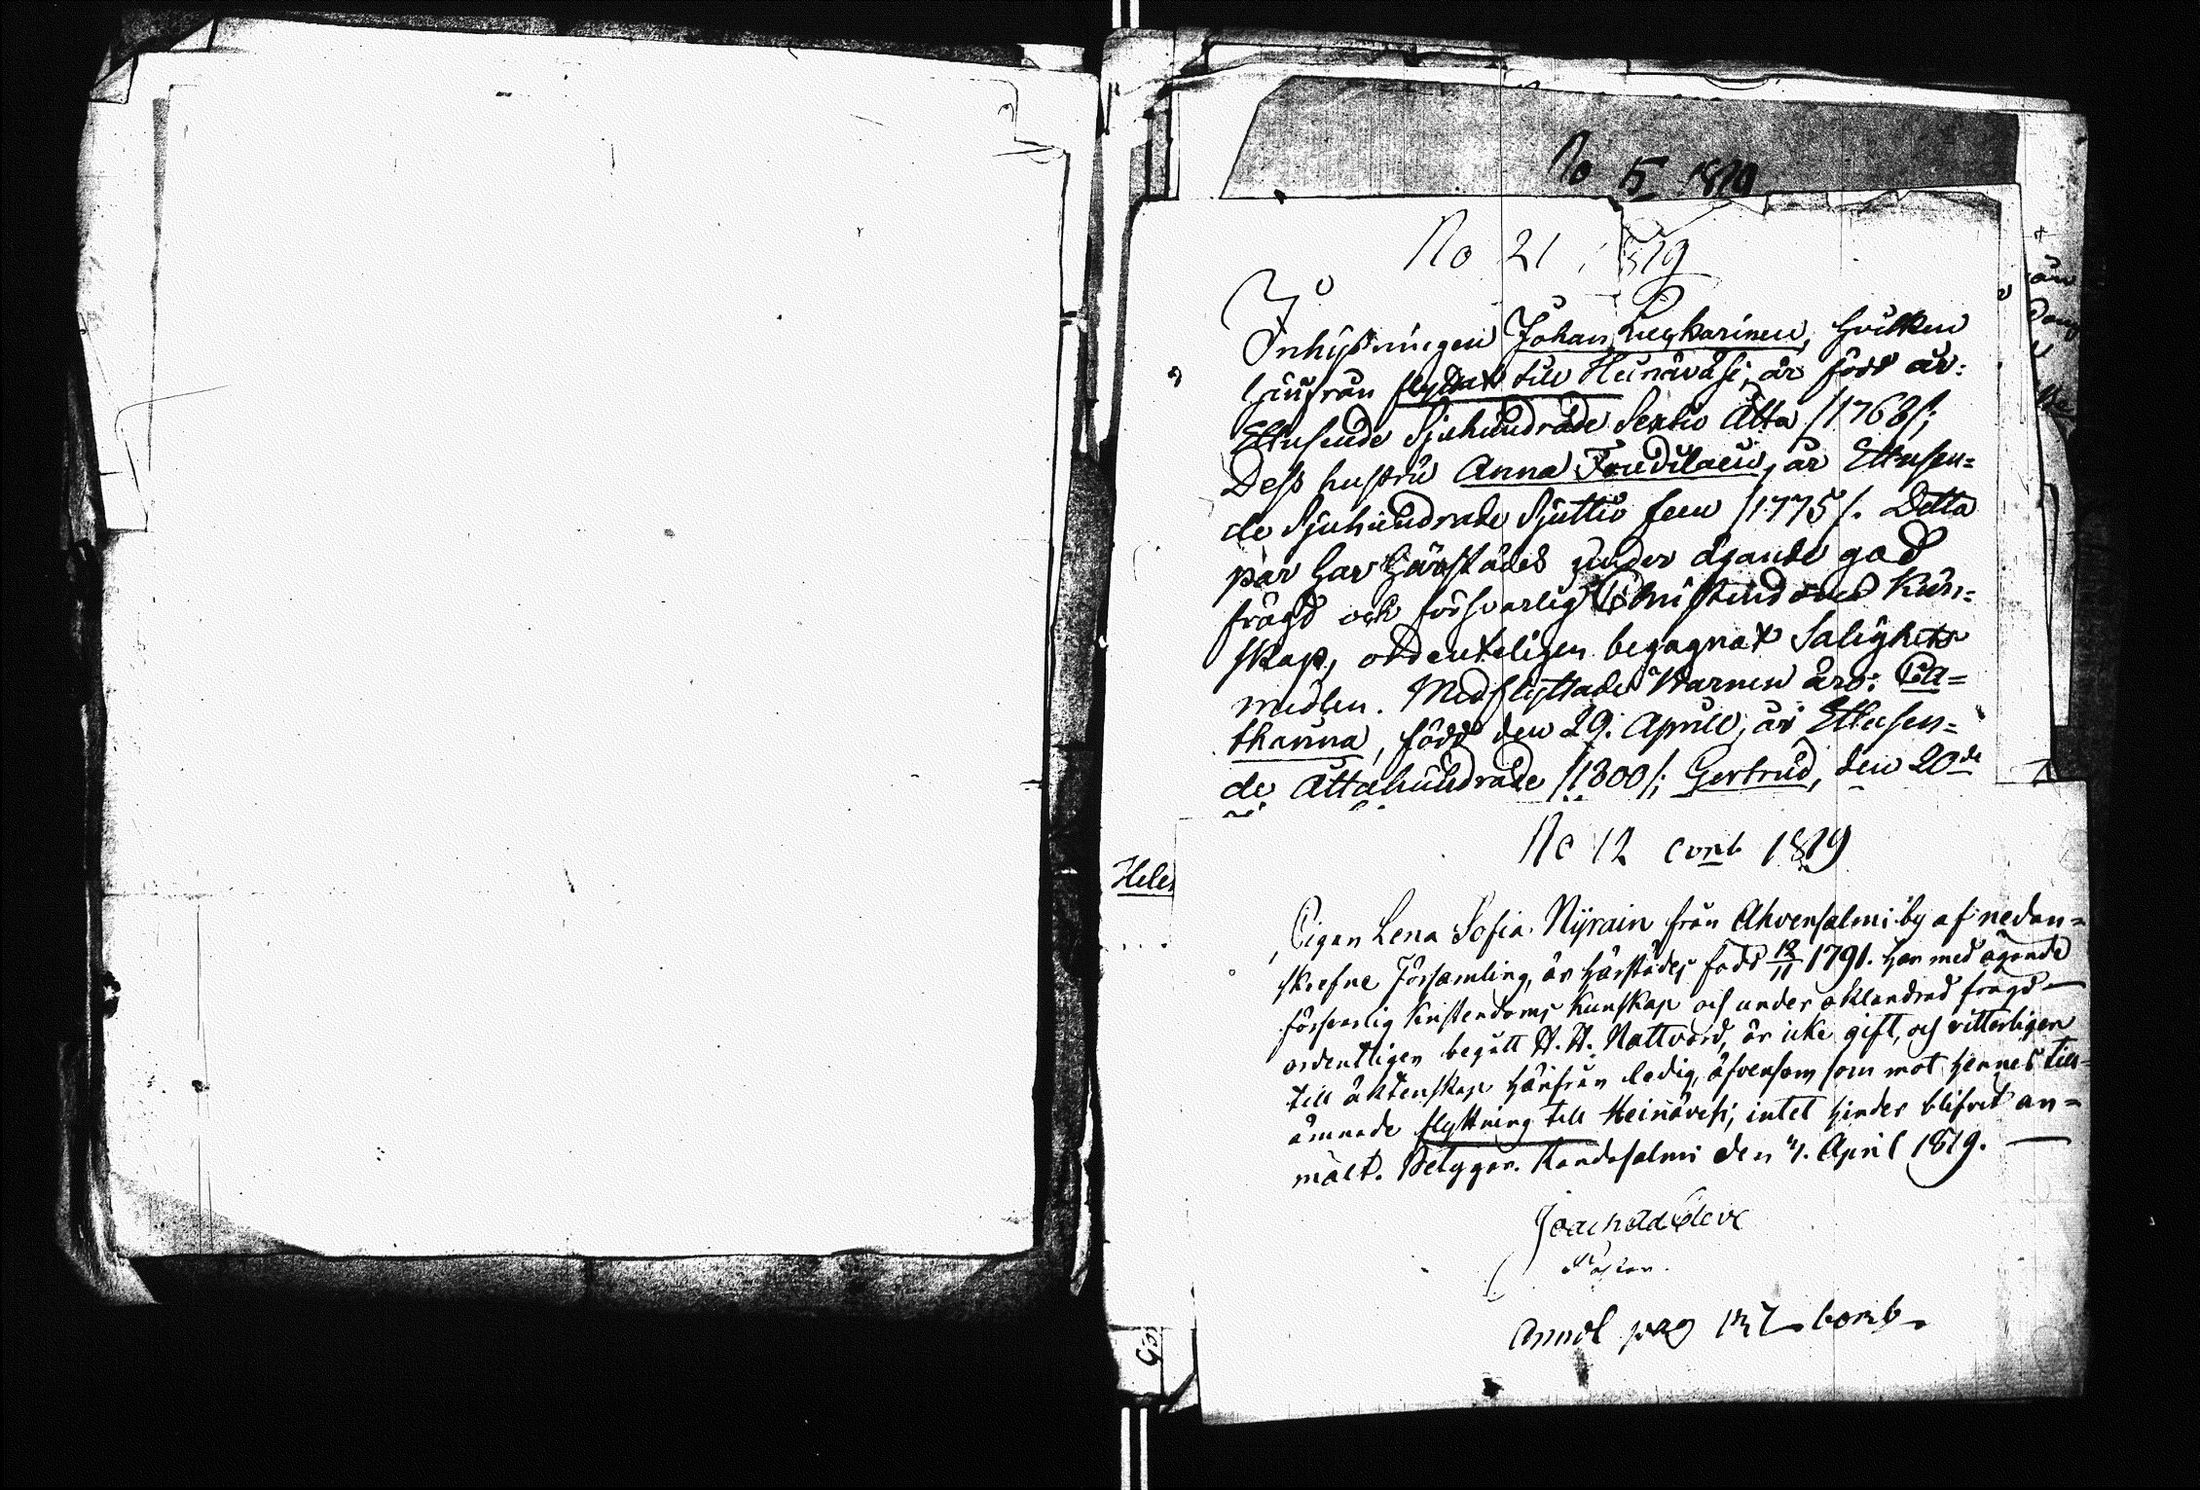 No 5 1819
No 21 1819
Inhysningen Johan Luukarinen, hvilken
härifrån flyttat till Heinävesi, är född år
Ettusende Sjuhundrade Sextio Åtta /1768/;
Dess hustru Anna år Ettusen=
de Sjuhundrade Sjuttio fem /1775/. Detta
par har härstädes under ägande god
frägd och försvarlig Christendoms Kun=
skap, ordenteligen begagnat Salighets
medlen. Medflyttade Barnen äro: Ca=
tharina, född den 29. Aprill, år Ettusen=
de Åttahundrade /1800/; Gertrud, den 20de
Helen
No 12 comb 1819
Pigan Lena Sofia Nyrain från Ahvensalmi by af nedan=
skrefne Församling, är härstädes född 12/11 1791. har med ägande
försvarlig Kristendoms Kunskap och under oklandrad frägd
ordentligen begått H. H. Nattvard, är icke gift, och vitterligen
till äktenskap härifrån ledig, äfvensom som mot hennes till=
ämnade flyttning till Heinävesi; intet hinder blifvit an=
mält. Betygar. Randasalmi den 4. April 1819.
Pastor.
Annot pag 137 comb.